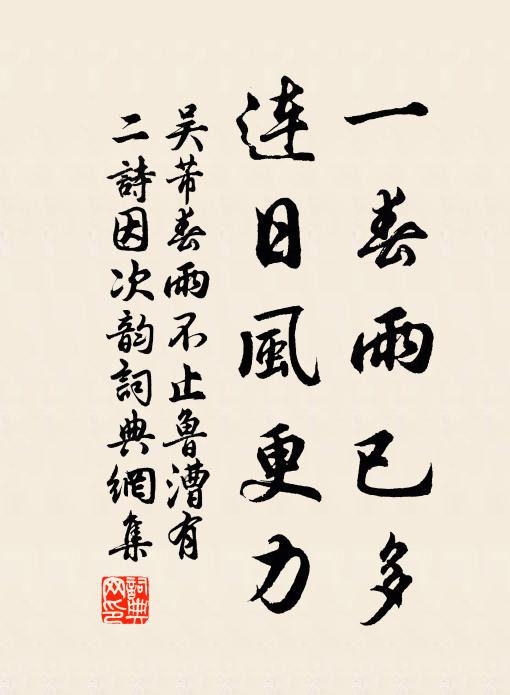 一春雨已多
連日風更力
吴芾春雨不止魯漕有
二詩因次韵詞典網集
詞典網印